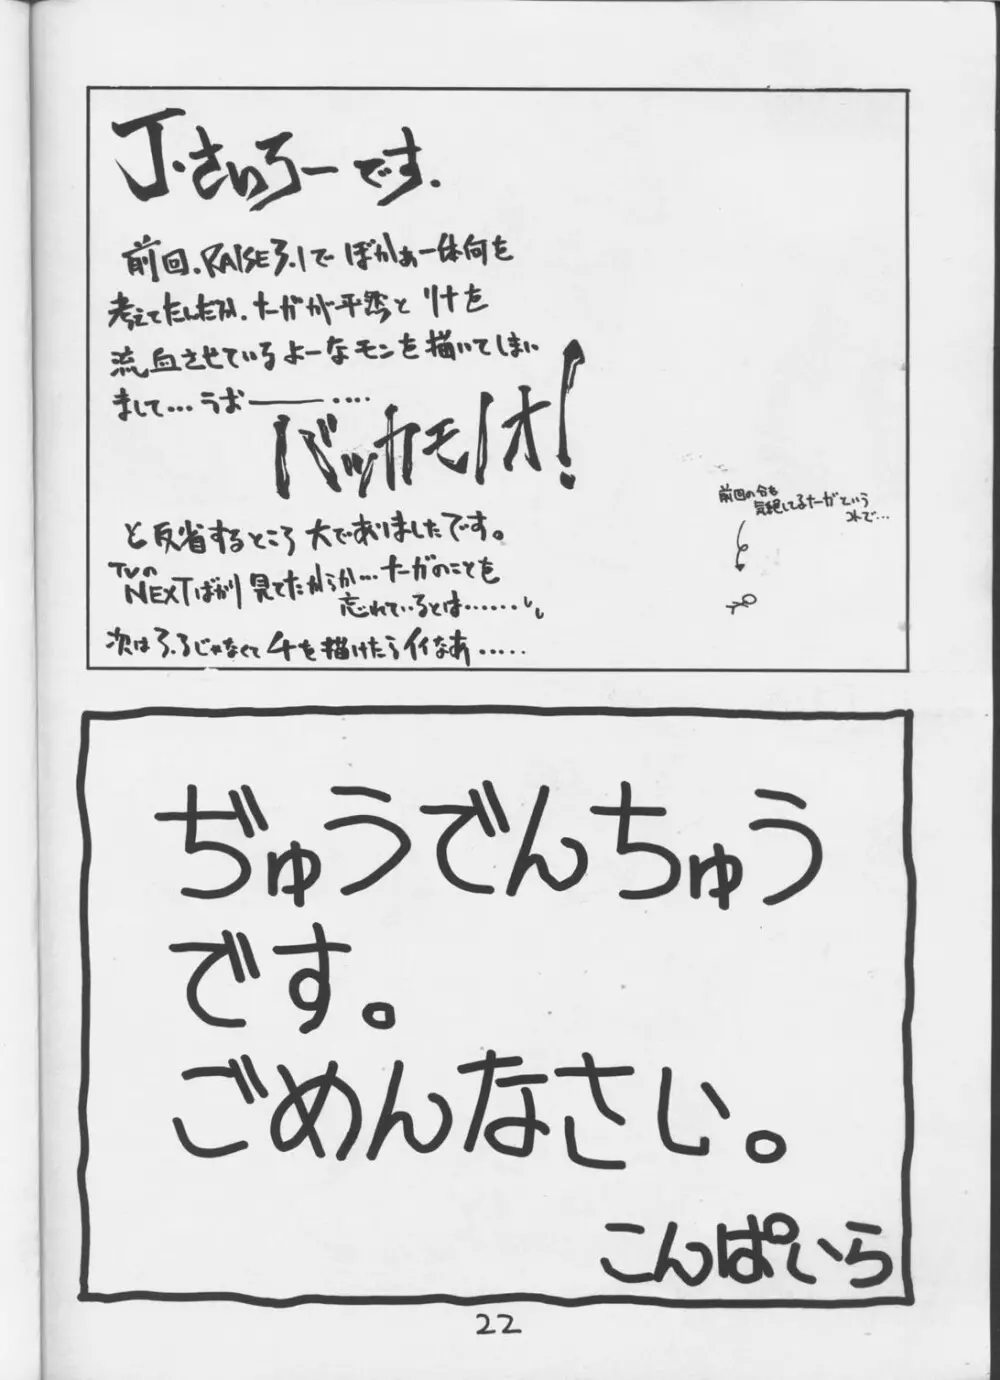 J・さいろーです.
前回.RAISE3.1でぼかぁ一体何を
考えてたんだか.たーがが平然とリナを
流血させているよーなモンを描いてしまい
まして…うお――‥‥
バッカモノオ!
と反省するところ大でありましたです。
TVの
NEXTばかり見てたからか…たーがのことを
忘れているとは……
次は3.3じゃなくて4を描けたらイイなあ.....
前回の分も
気絶してるたーがという
コトで…
ぢゅうでんちゅう
です。
ごめんなさい。
こんぱいら
22